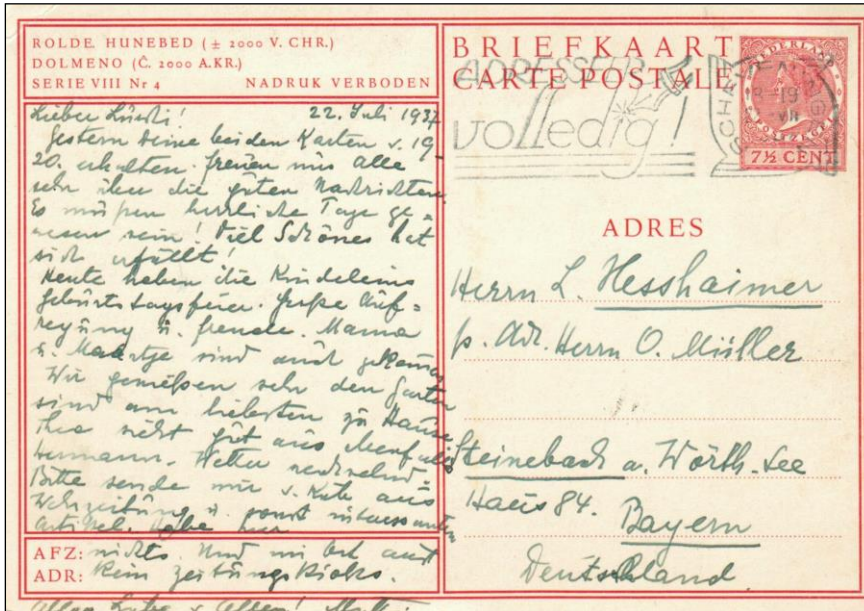 ROLDE. HUNEBED (± 2000 V. CHR.)
DOLMENO (Č. 2000 A.KR.)
SERIE VIII Nr 4 NADRUK VERBODEN
Lieber Luesti! 22. Juli 1937
Gestern Deine beiden Karten v. 19-
20. erhalten. Freuen uns alle
sehr über die guten Nachrichten.
Es müßen herrliche Tage ge=
wesen sein! Viel Schönes hat
sich erfüllt!
Heute haben die Kindeleins
Geburtstagsfeier. Große Auf=
regung u. Freude. Mama
u. Maartje sind auch gekommen
Wir genießen sehr den Garten
sind am liebsten zu Hause.
Thea sieht gut aus, ebenfalls
Hermann. Wetter wechselnd.
Bitte sende mir v. Kate aus
Wehrzeitung u. sonst interessanten
Artikel. habe hier
AFZ: nichts. Und wir hat auch
ADR: kein Zeitungskiosk.
Alles Liebe v. Allen!
BRIEFKAART
CARTE POSTALE
ADRESSEER
volledig!
SCHEVENINGEN
8-19
VII
NEDERLAND
POSTZEGEL
7½ CENT
ADRES
Herrn L. Hesshaimer
p. Adr. Herrn O. Müller
Steinebach a. Wörth-See
Haus 84.
Bayern
Deutschland